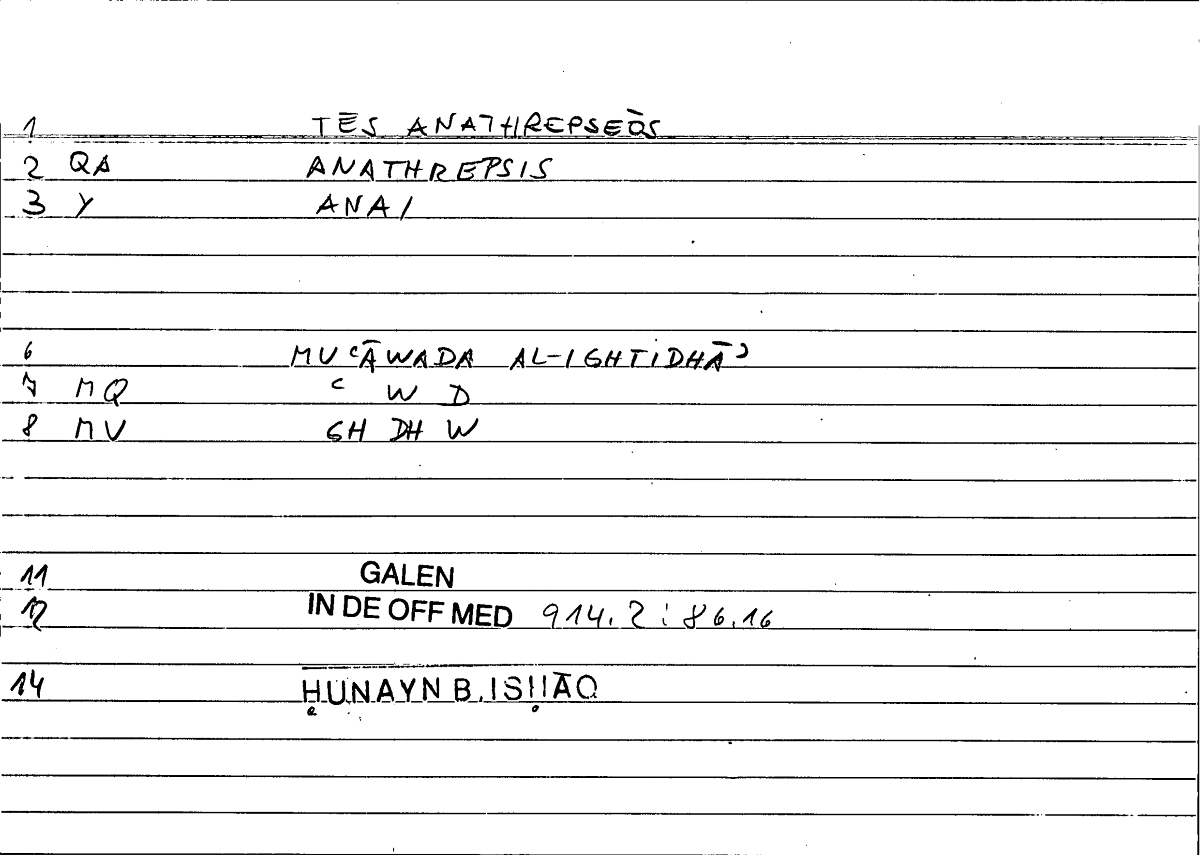 1 TĒS ANATHREPSEŌS
2 QA ANATHREPSIS
3 Y ANA/
6 MUʿĀWADA AL-IGHTIDHĀʾ
7 MQ ʿ W D
8 MU GH DH W
11 GALEN
12 IN DE OFF MED 914.2 : 86.16
14 ḤUNAYN B. ISḤĀQ